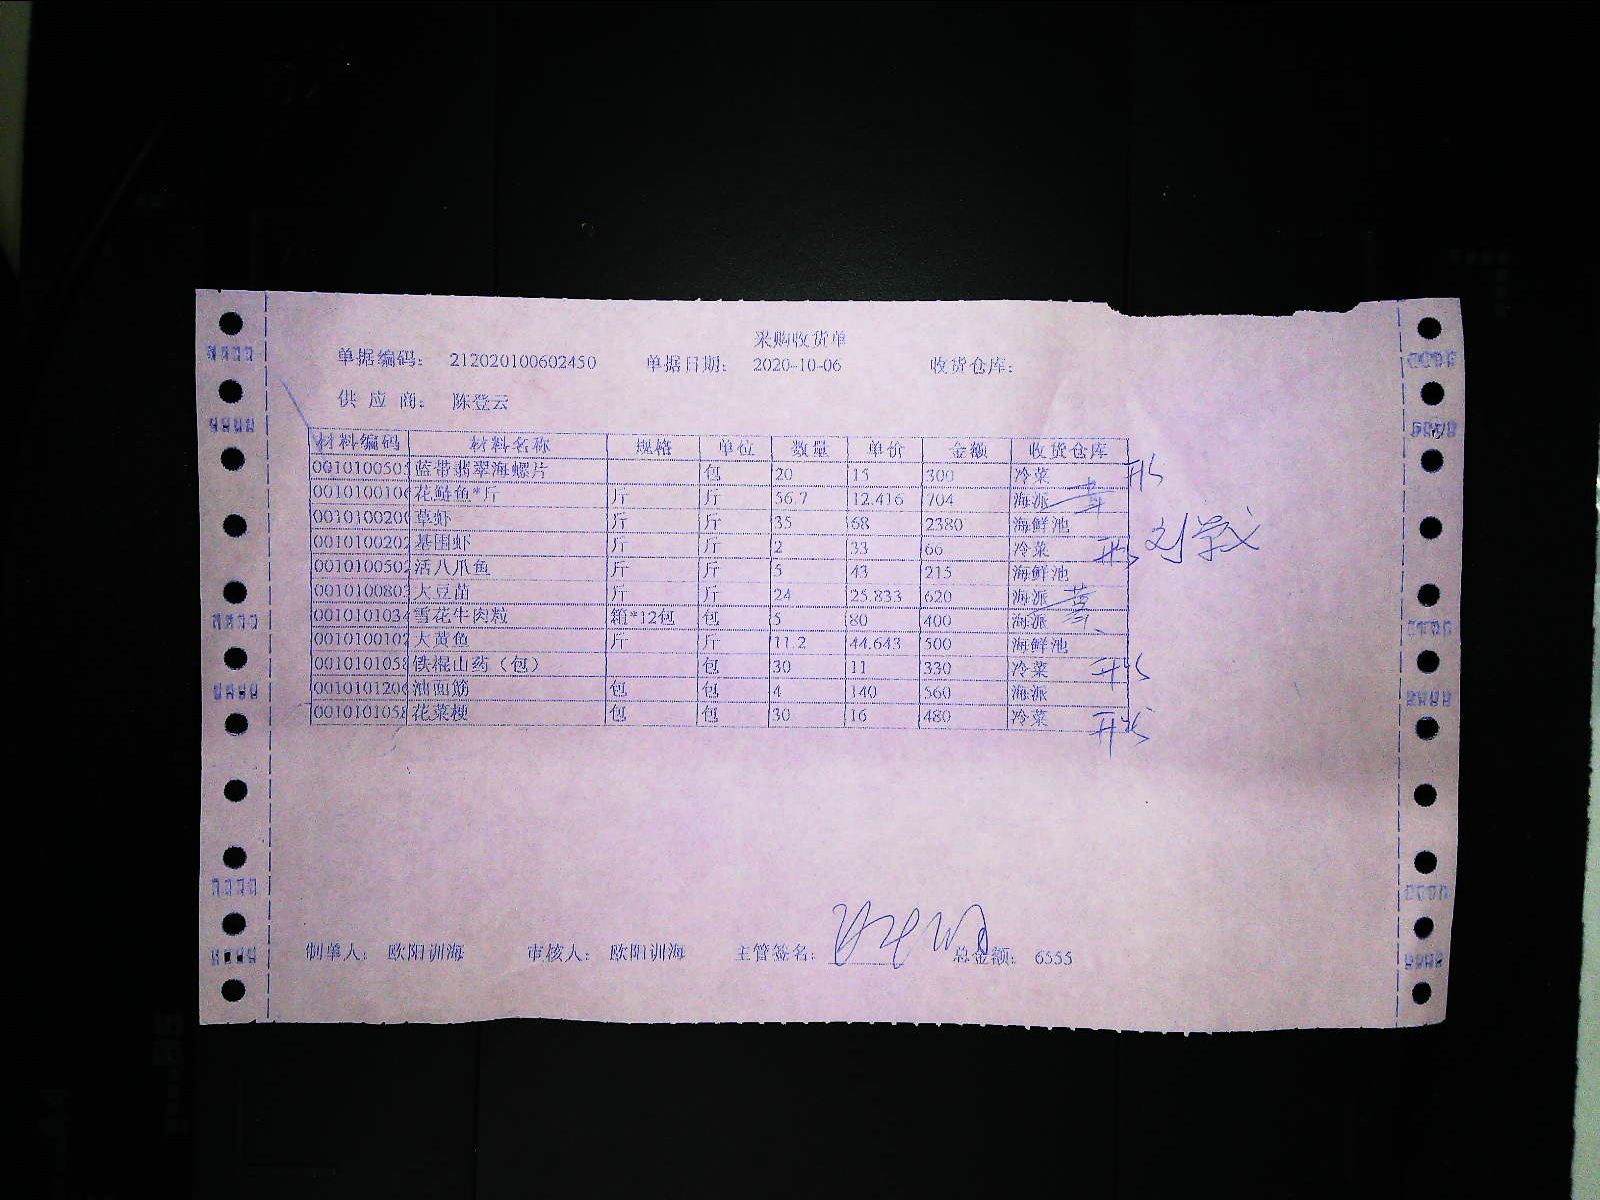 采购收货单
单据编码： 212020100602450 单据日期： 2020-10-06 收货仓库：
供 应 商： 陈登云
材料编码 材料名称 规格 单位 数量 单价 金额 收货仓库
0010100505 蓝带翡翠海螺片 包 20 15 300 冷菜
0010100106 花鲢鱼*斤 斤 斤 56.7 12.416 704 海派
0010100200 草虾 斤 斤 35 68 2380 海鲜池
0010100202 基围虾 斤 斤 2 33 66 冷菜
0010100502 活八爪鱼 斤 斤 5 43 215 海鲜池
0010100803 大豆苗 斤 斤 24 25.833 620 海派
0010101034 雪花牛肉粒 箱*12包 包 5 80 400 海派
0010100102 大黄鱼 斤 斤 11.2 44.643 500 海鲜池
0010101058 铁棍山药（包） 包 30 11 330 冷菜
0010101206 油面筋 包 包 4 140 560 海派
0010101058 花菜梗 包 包 30 16 480 冷菜
制单人： 欧阳训海 审核人： 欧阳训海 主管签名： 总金额： 6555